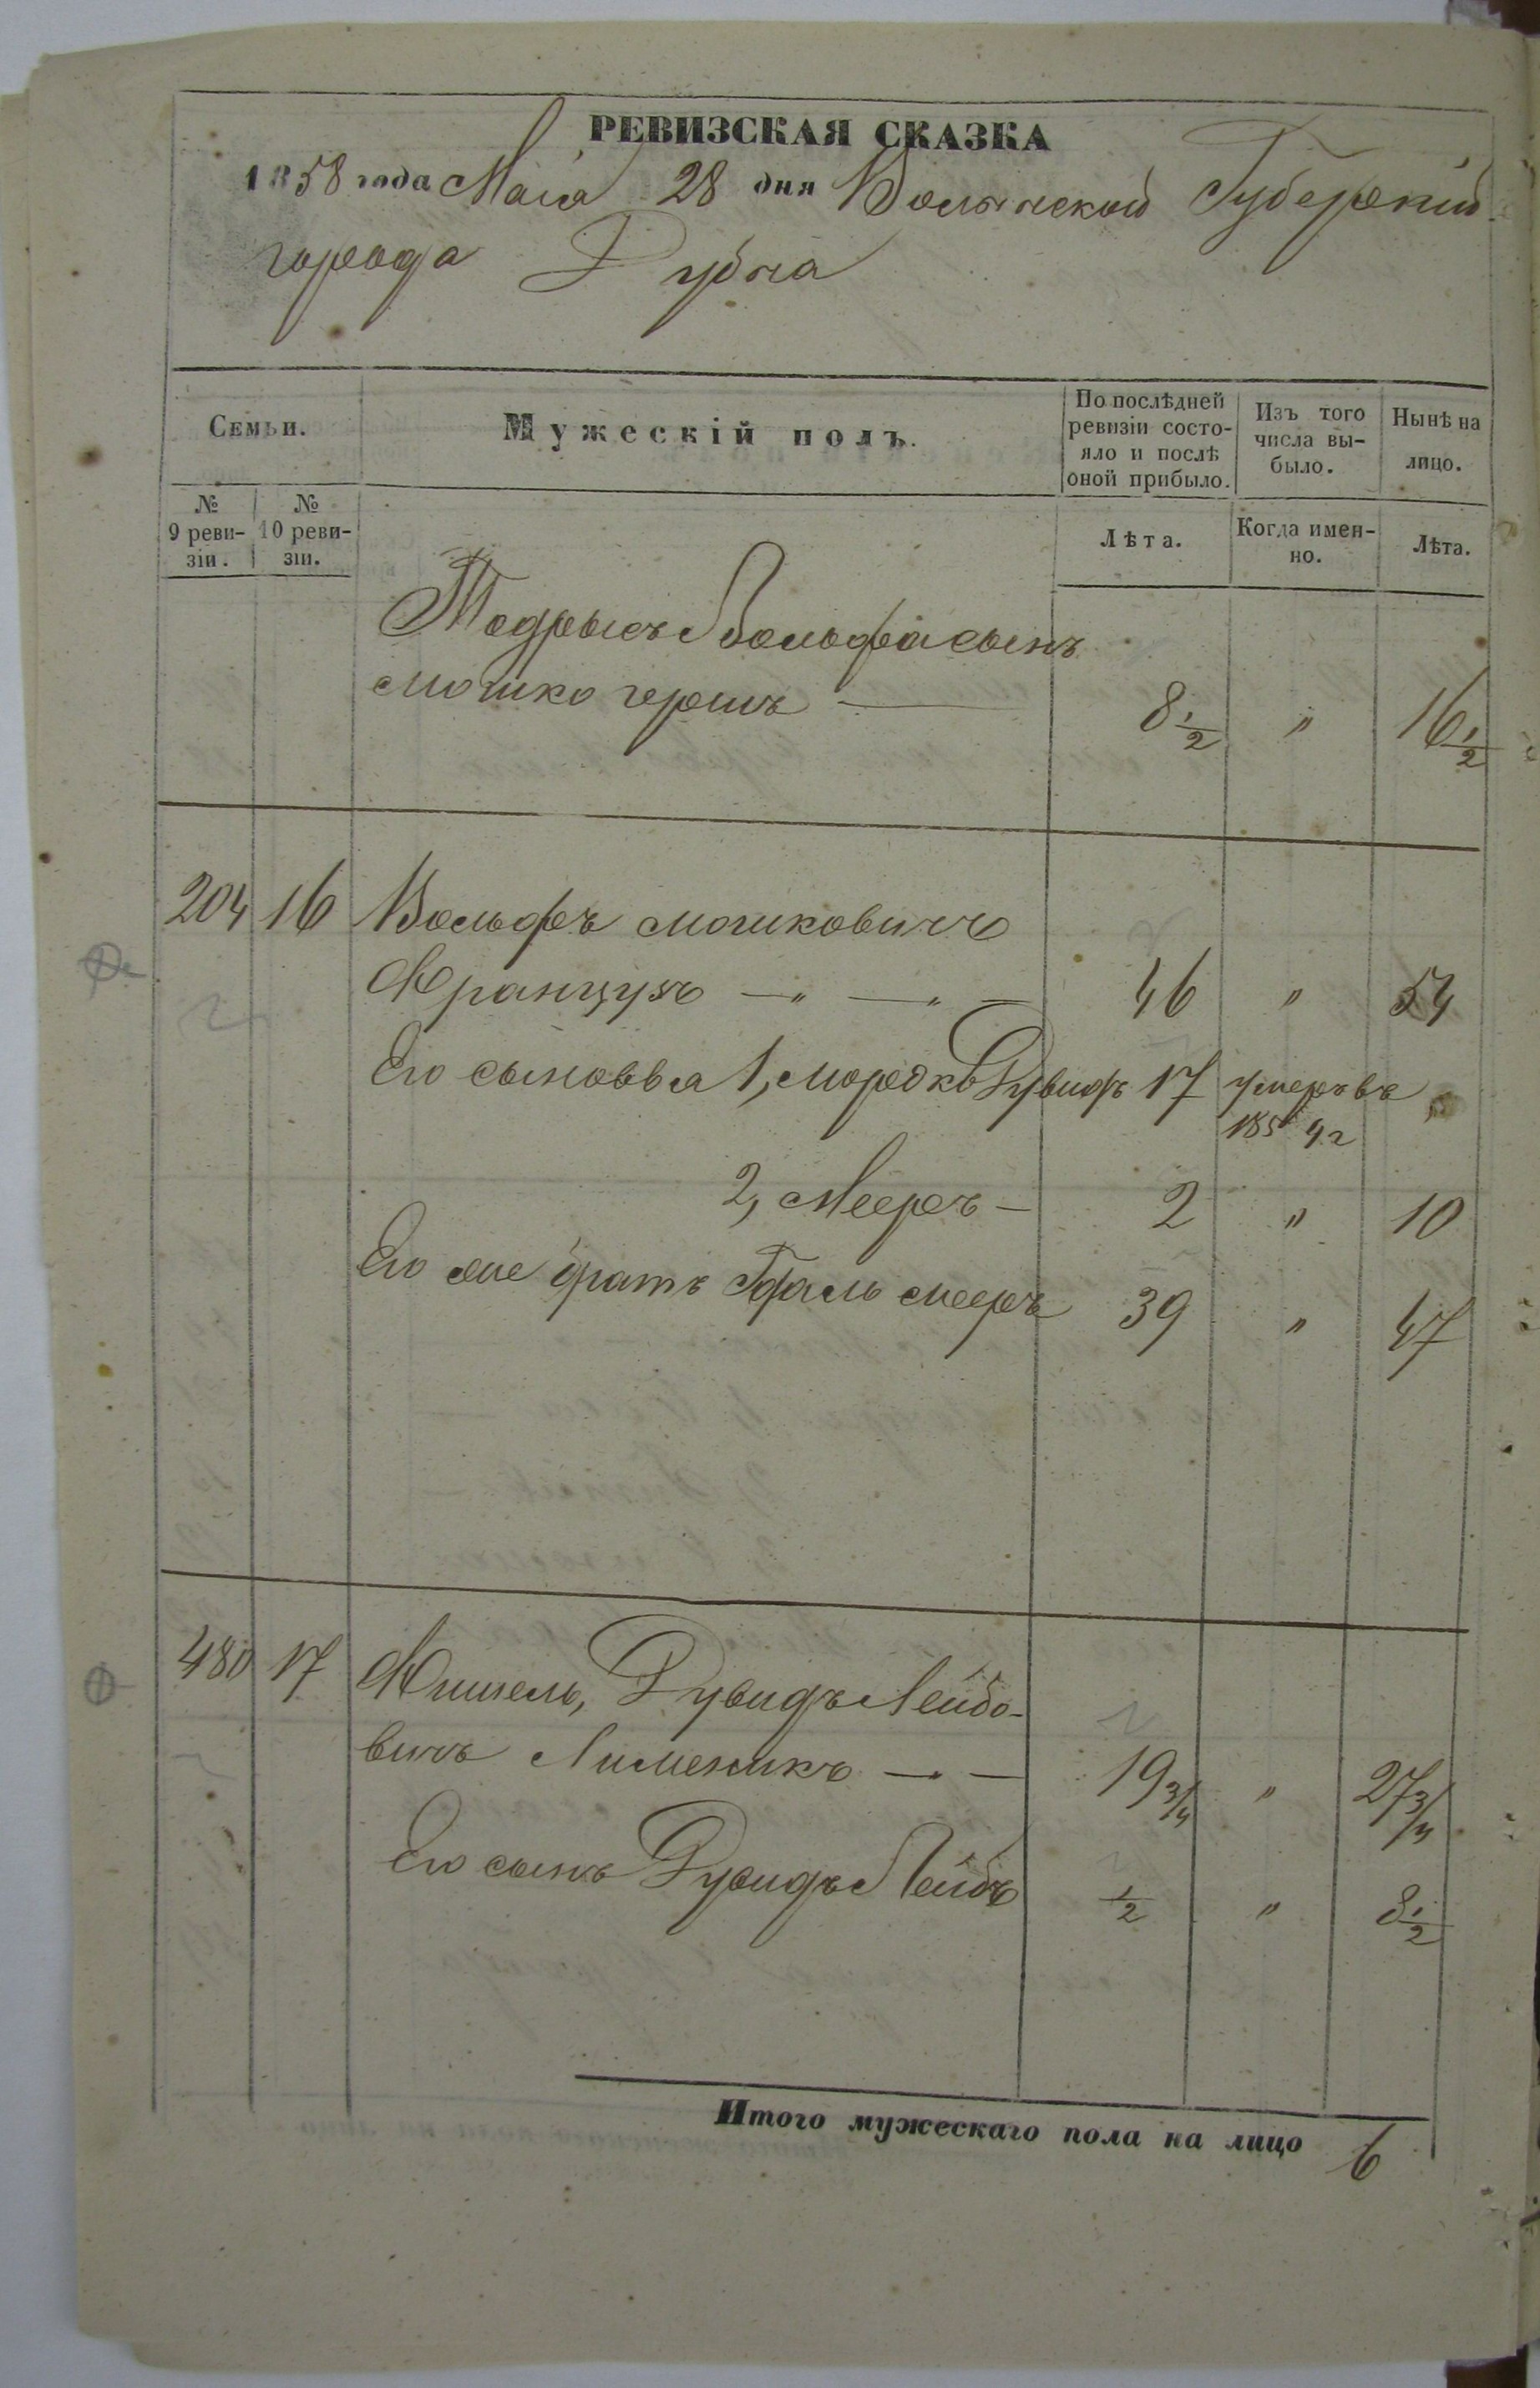 РЕВИЗСКАЯ СКАЗКА
1858 года Маія 28 дня Волынской Губерніи
города Дубна
Семьи.
Мужескій полъ.
По послѣдней ревизіи состо-
яло и послѣ оной прибыло.
Изъ того числа вы-
было.
Нынѣ на лицо.
№ 9 реви-
зіи.
№ 10 реви-
зіи.
Лѣта.
Когда имен-
но.
Лѣта.
Вольфа сынъ
Мошко Гершъ — 8 1/2 " 16 1/2
204 16 Вольфъ Мошковичъ
Французъ — " — " — 46 " 54
Его сыновья 1, Мордко 17 умеръ въ "
1854 г
2, Мееръ — 2 " 10
Его же братъ Мееръ 39 " 47
480 17 Фишель, Дувидъ Лейбо-
вичъ — " — 19 3/4 " 27 3/4
Его сынъ Дувидъ Лейбъ 1/2 " 8 1/2
Итого мужескаго пола на лицо 6